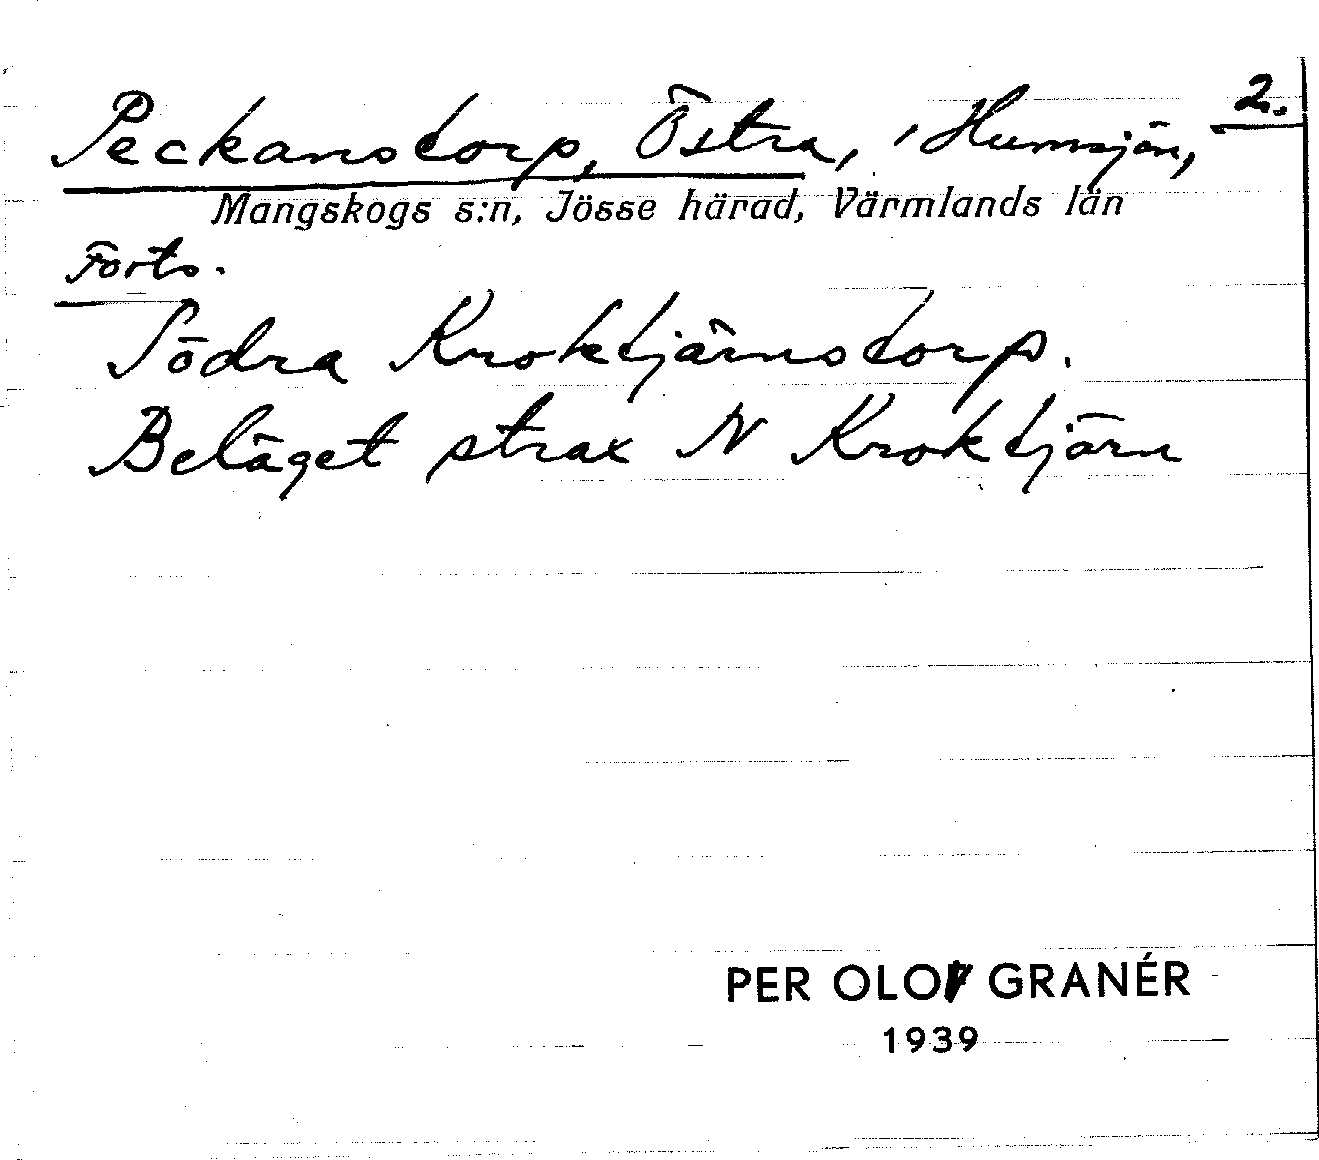 2.
Peckanstorp, Östra, 'Humsjön,
Mangskogs s:n, Jösse härad, Värmlands län
Forts.
Södra Kroktjärnstorp.
Beläget strax N Kroktjärn
PER OLOV GRANÉR
1939